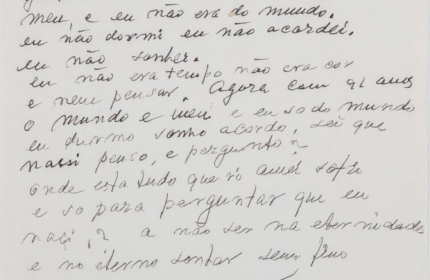 meu, e eu não era do mundo.
eu não dormi eu não acordei.
eu não sonhei.
eu não era tempo não era cor
e nem pensar. Agora com 91 anos
o mundo e meu e eu so do mundo
eu durmo sonho acordo, sei que
nassi penso, e pergunto?
onde esta tudo que vi amei sofri
e so para perguntar que eu
naçi,? a não ser na eternidade
e no eterno sonhar sem fim